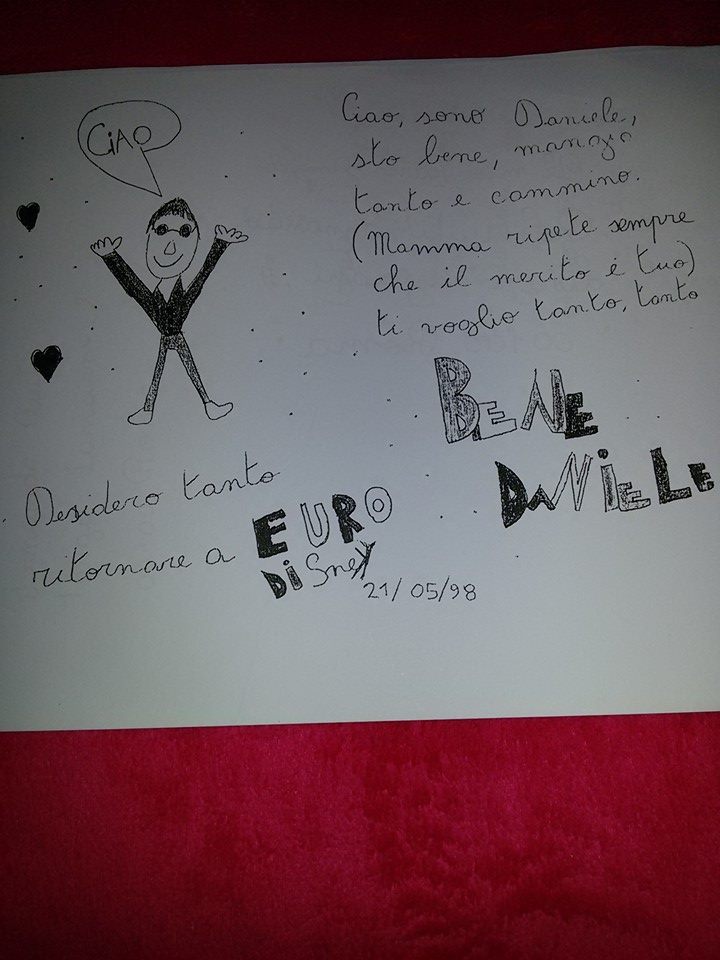 CiAO
Ciao, sono Daniele,
sto bene, mangio
tanto e cammino.
(Mamma ripete sempre
che il merito é tuo)
ti voglio tanto, tanto
BENE
DANiELE
Desidero tanto
ritornare a EURO
DiSney
21/05/98